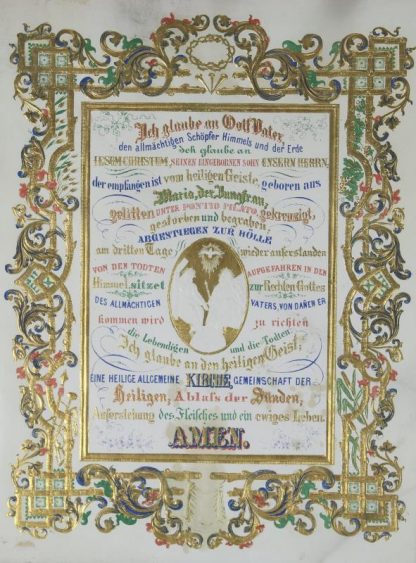 Ich glaube an Gott Vater
den allmächtigen Schöpfer Himmels und der Erde
Ich glaube an
IESUM CHRISTUM, SEINEN EINGEBORNEN SOHN UNSERN HERRN,
der empfangen ist vom heiligen Geiste, geboren aus
Maria, der Jungfrau,
gelitten UNTER PONTIO PILATO, gekreuzigt,
gestorben und begraben,
ABGESTIEGEN ZUR HÖLLE
am dritten Tage wieder auferstanden
VON DEN TODTEN AUFGEFAHREN IN DEN
Himmel, sitzet zur Rechten Gottes
DES ALLMÄCHTIGEN VATERS, VON DANEN ER
kommen wird zu richten
die Lebendigen und die Todten.
Ich glaube an den heiligen Geist;
EINE HEILIGE ALLGEMEINE KIRCHE GEMEINSCHAFT DER
Heiligen, Ablaß der Sünden,
Auferstehung des Fleisches und ein ewiges Leben.
AMEN.